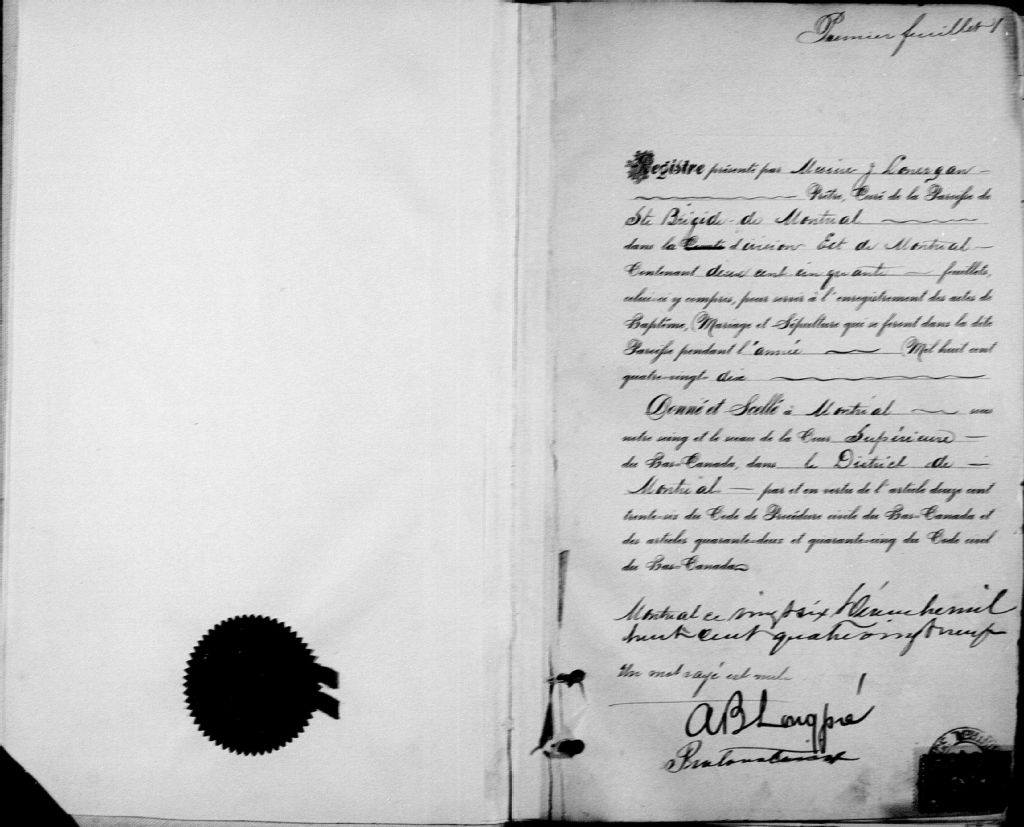 Premier feuillet 1
Registre présenté par Messire J Lonergan
Prêtre, Curé de la Paroisse de
Ste Brigide de Montréal
dans la Comté division Est de Montréal
Contenant deux cent cinquante feuillets,
celui-ci y compris, pour servir à l'enregistrement des actes de
Baptême, Mariage et Sépulture qui se feront dans la dite
Paroisse pendant l'année Mil huit cent
quatre-vingt dix
Donné et Scellé à Montréal sous
notre seing et le sceau de la Cour Supérieure
du Bas-Canada, dans le District de
Montréal par et en vertu de l'article douze cent
trente-six du Code de Procédure civile du Bas-Canada et
des articles quarante-deux et quarante-cinq du Code civil
du Bas-Canada
Montréal ce vingt six Décembre mil
huit cent quatre vingt neuf
Un mot rayé est nul
AB Longpré
Protonotaire